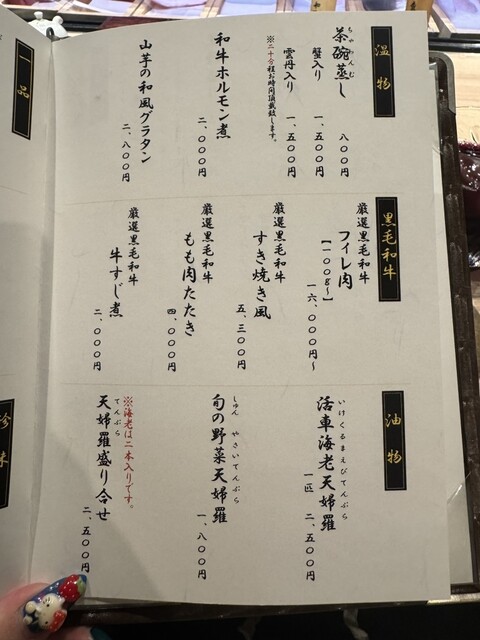 温物
茶碗蒸し
ちゃわんむ
八〇〇円
蟹入り 一、五〇〇円
雲丹入り 一、五〇〇円
※二十分程お時間頂戴致します。
和牛ホルモン煮
二、〇〇〇円
山芋の和風グラタン
二、八〇〇円
黒毛和牛
厳選黒毛和牛
フィレ肉
【一〇〇g〜】
一六、〇〇〇円〜
厳選黒毛和牛
すき焼き風
五、三〇〇円
厳選黒毛和牛
もも肉たたき
四、〇〇〇円
厳選黒毛和牛
牛すじ煮
二、〇〇〇円
油物
いけくるまえびてんぷら
活車海老天婦羅
一匹 二、五〇〇円
しゅん やさいてんぷら
旬の野菜天婦羅
一、八〇〇円
※海老は二本入りです。
てんぷら
天婦羅盛り合せ
二、五〇〇円
一品
珍味